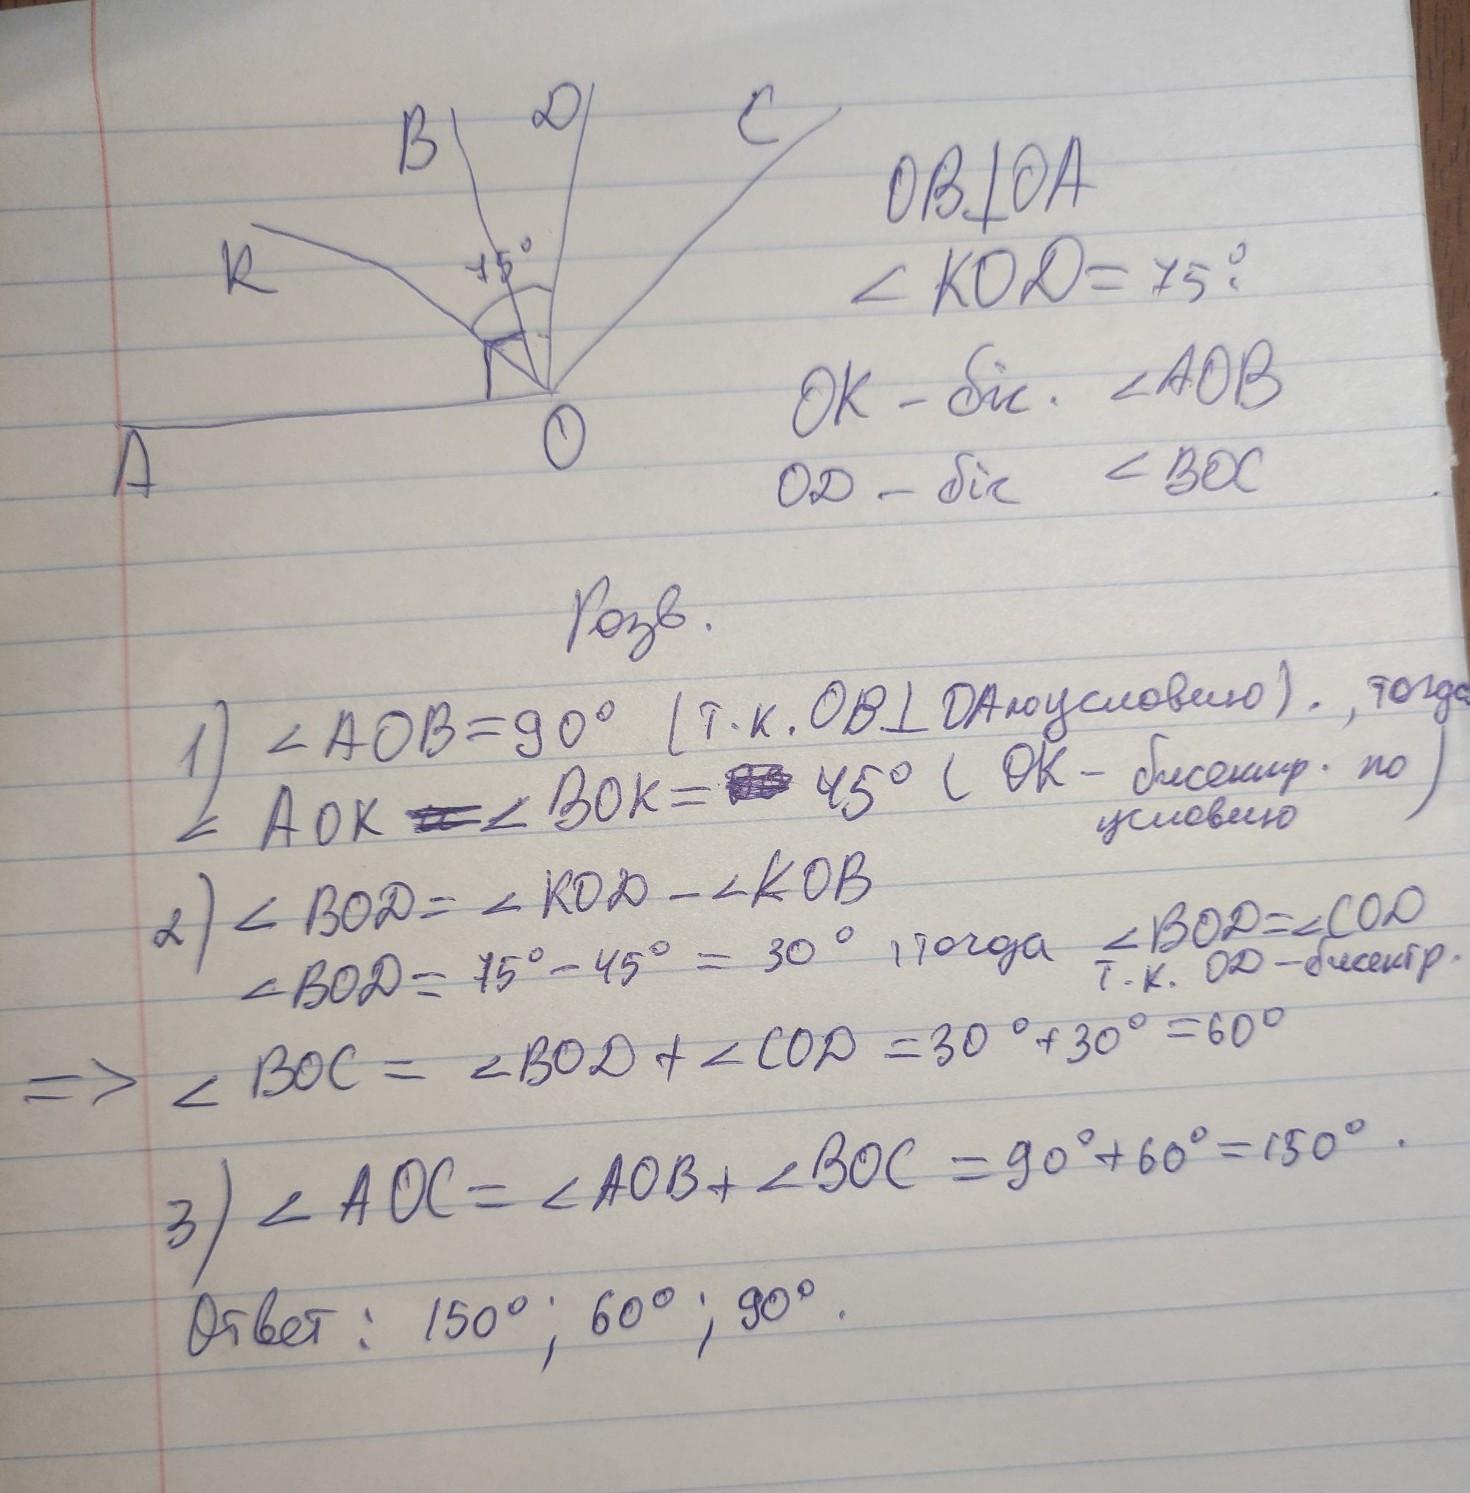 B D C
K
75°
A
O
OB⊥OA
∠KOD=75°
OK – біс. ∠AOB
OD – біс ∠BOC
Розв.
1) ∠AOB=90° (т.к. OB⊥OA по условию)., тогда
∠AOK = ∠BOK = 45° ( OK – биссектр. по условию)
2) ∠BOD = ∠KOD – ∠KOB
∠BOD = 75° – 45° = 30°, тогда ∠BOD=∠COD
т.к. OD – биссектр.
=> ∠BOC = ∠BOD + ∠COD = 30°+30°=60°
3) ∠AOC = ∠AOB + ∠BOC = 90°+60°=150°.
Ответ: 150°; 60°; 90°.